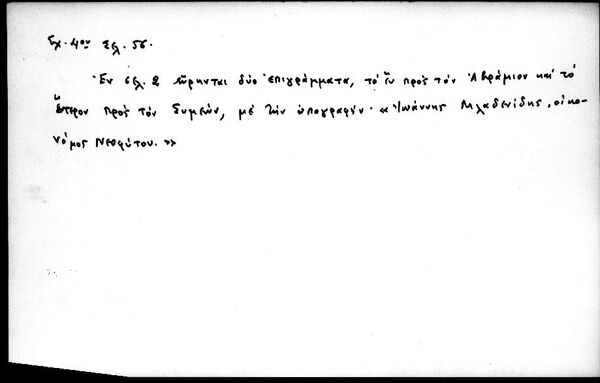 Σχ. 4ον Σελ. 56.
Ἐν σελ. 2 εὕρηνται δύο ἐπιγράμματα, τὸ ἓν πρὸς τὸν Ἀβράμιον καὶ τὸ
ἕτερον πρὸς τὸν Συμεών, μὲ τὴν ὑπογραφὴν· «Ἰωάννης Μλαδενίδης, οἰκο-
νόμος Νεοφύτου.»